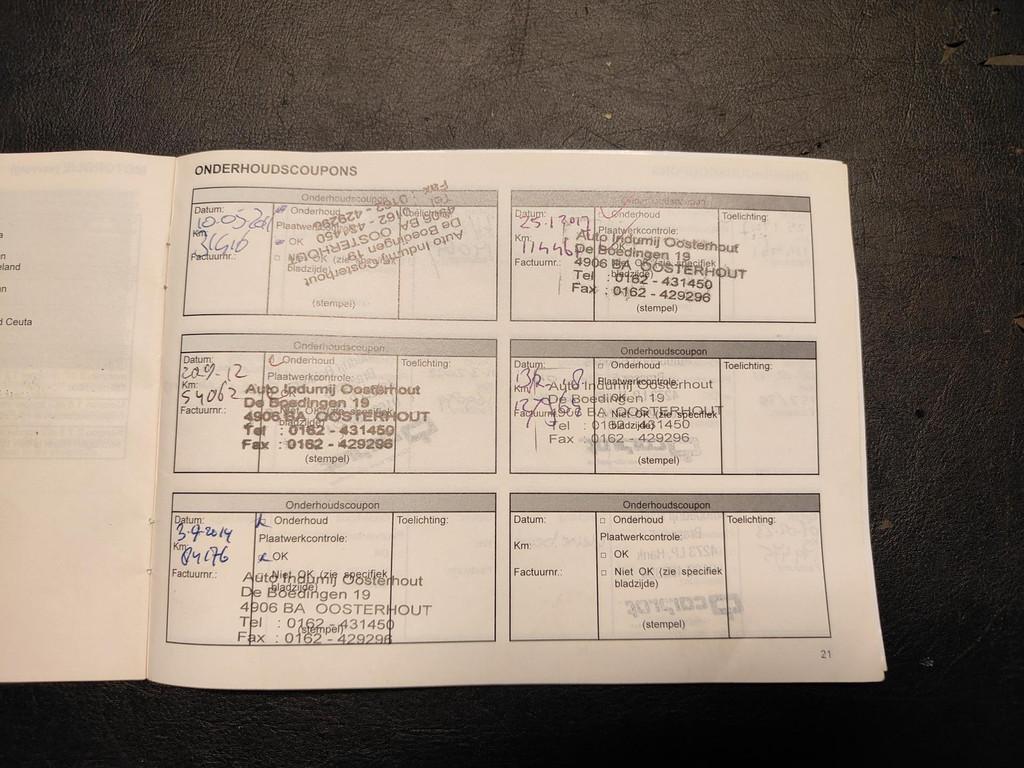 eland
d Ceuta
ONDERHOUDSCOUPONS
Onderhoudscoupon
Datum:
Km:
31416
Factuurnr.:
Onderhoud
Plaatwerkcontrole:
OK
Niet OK (zie specifiek
bladzijde)
Toelichting:
Auto Indumij Oosterhout
De Boedingen 19
4906 BA OOSTERHOUT
Tel : 0162 - 431450
Fax : 0162 - 429296
(stempel)
Datum:
25.1.2017
Km:
Onderhoud
Plaatwerkcontrole:
OK
Niet OK (zie specifiek
bladzijde)
Toelichting:
Auto Indumij Oosterhout
De Boedingen 19
4906 BA OOSTERHOUT
Tel : 0162 - 431450
Fax : 0162 - 429296
(stempel)
Onderhoudscoupon
Datum:
Km:
54062
Factuurnr.:
Onderhoud
Plaatwerkcontrole:
OK
Niet OK (zie specifiek
bladzijde)
Toelichting:
Auto Indumij Oosterhout
De Boedingen 19
4906 BA OOSTERHOUT
Tel : 0162 - 431450
Fax : 0162 - 429296
(stempel)
Onderhoudscoupon
Datum:
Km:
Factuurnr.:
Onderhoud
Plaatwerkcontrole:
OK
Niet OK (zie specifiek
bladzijde)
Toelichting:
Auto Indumij Oosterhout
De Boedingen 19
4906 BA OOSTERHOUT
Tel : 0162 - 431450
Fax : 0162 - 429296
(stempel)
Onderhoudscoupon
Datum:
3-9-2014
Km:
84176
Factuurnr.:
Onderhoud
Plaatwerkcontrole:
OK
Niet OK (zie specifiek
bladzijde)
Toelichting:
Auto Indumij Oosterhout
De Boedingen 19
4906 BA OOSTERHOUT
Tel : 0162 - 431450
Fax : 0162 - 429296
(stempel)
Onderhoudscoupon
Datum:
Km:
Factuurnr.:
Onderhoud
Plaatwerkcontrole:
OK
Niet OK (zie specifiek
bladzijde)
Toelichting:
(stempel)
21